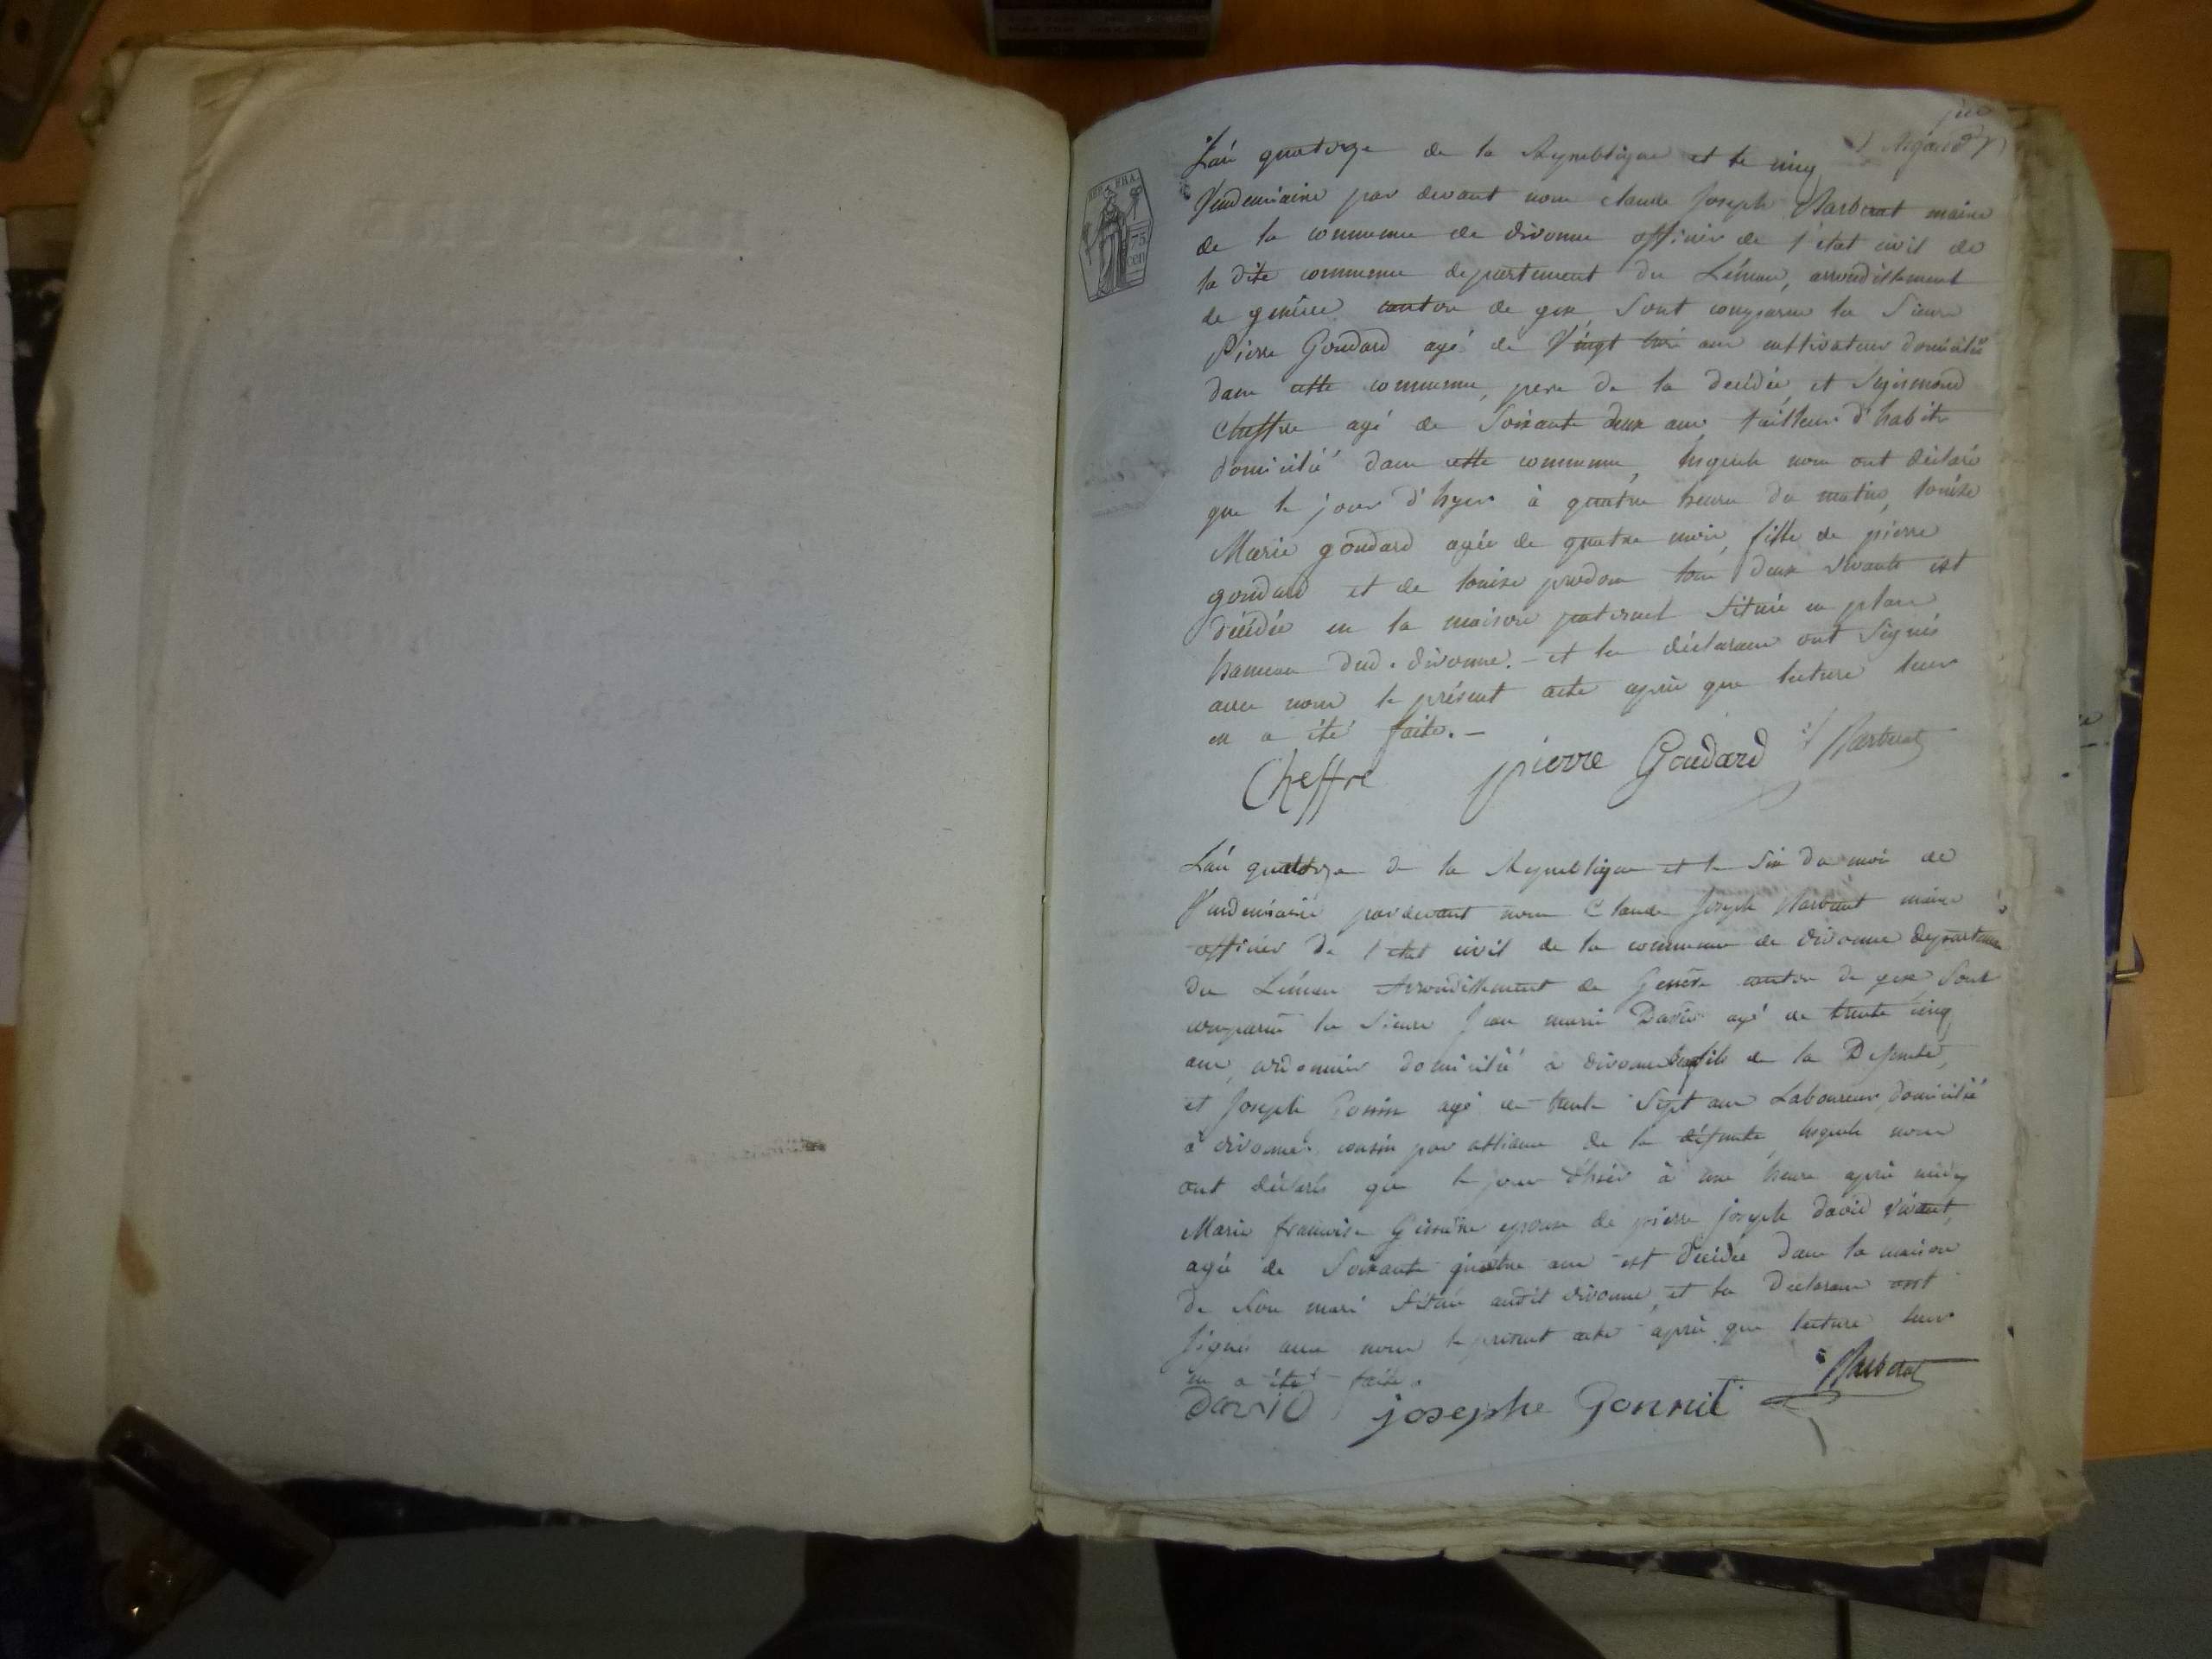 REP. FRA.
75 cen
L'an quatorze de la Republique et le cinq
Vendemiaire par devant nous Claude Joseph Barberat maire
de la commune de divonne officier de l'etat civil de
la dite commune departement du Léman, arrondissement
de genève canton de gex, sont comparus les sieurs
Pierre Goudard agé de Vingt ans cultivateur domicilié
dans cette commune, pere de la decédée et Sigismond
Cheffre agé de Soixante deux ans tailleur d'habits
domicilié dans cette commune, lesquels nous ont déclaré
que le jour d'hyer à quatre heures du matin, louise
Marie goudard agée de quatre mois, fille de pierre
goudard et de louise prodon tous deux vivants est
décédée en la maison paternel située en plan
hameau dud. divonne. - et les déclarans ont signés
avec nous le présent acte après que lecture leur
en a été faite. -
Cheffre pierre Goudard Barberat
L'an quatorze de la Republique et le six du mois de
Vendemiaire pardevant nous Claude Joseph Barberat maire
officier de l'etat civil de la commune de divonne departement
du Léman Arrondissement de Genève canton de gex, sont
comparus les sieurs Jean marie David agé de trente cinq
ans, cordonnier domicilié à divonne fils de la Defunte,
et Joseph Gonin agé de trente Sept ans Laboureur domicilié
à divonne cousin par alliance de la défunte, lesquels nous
ont déclarés que le jour d'hier à une heure après midy
Marie francoise epouse de pierre joseph david vivant,
agée de Soixante quatre ans est decedée dans la maison
de son mari située audit divonne, et les Declarans ont
signés avec nous le present acte après que lecture leur
en a été faite.
David josephe Gonnil Barberat